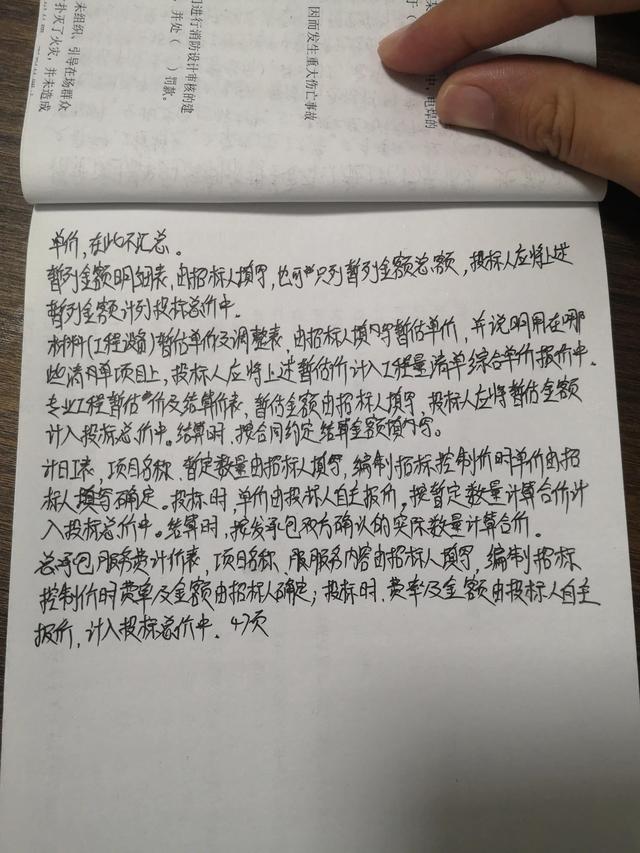 未组织、引导在场群众
扑灭了火灾，并未造成
门进行消防设计审核的建
，并处（　）罚款。
因而发生重大伤亡事故
中，电焊的
单价，在此不汇总。
暂列金额明细表，由招标人填写，也可只列暂列金额总额，投标人应将上述
暂列金额计列投标总价中。
材料(工程设备)暂估单价及调整表，由招标人填写暂估单价，并说明用在哪
些清单项目上，投标人应将上述暂估价计入工程量清单综合单价报价中。
专业工程暂估价及结算价表，暂估金额由招标人填写，投标人应将暂估金额
计入投标总价中。结算时，按合同约定结算金额填写。
计日工表，项目名称、暂定数量由招标人填写，编制招标控制价时单价由招
标人填写确定。投标时，单价由投标人自主报价，按暂定数量计算合价计
入投标总价中。结算时，按发承包双方确认的实际数量计算合价。
总承包服务费计价表，项目名称、服务内容由招标人填写，编制招标
控制价时费率及金额由招标人确定；投标时、费率及金额由投标人自主
报价，计入投标总价中。47页